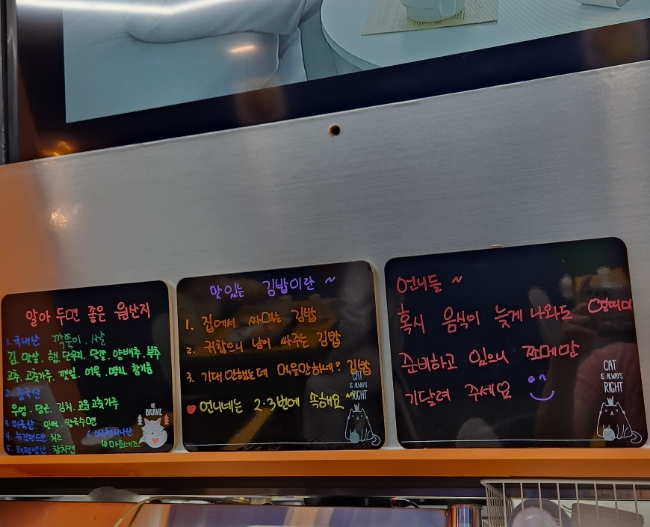 알아 두면 좋은 원산지
1. 국내산 깍뚝이, 쌀
김, 맛살, 햄, 단무지, 달걀, 양배추, 부추
고추, 고춧가루, 깻잎,
2. 중국산
우엉, 당근, 김치,
3. 미국산
4. 뉴질랜드산 치즈
5. 태평양산 참치캔
마요네즈
BE
BRAVE
맛있는 김밥이란 ~
1. 집에서 싸먹는 김밥
2. 귀찮으니 남이 싸주는 김밥
3. 기대 안했는데 먹을만하네? 김밥
언니네는 2-3번에 속해요
CAT
IS ALWAYS
RIGHT
언니들 ~
혹시 음식이 늦게 나와도 열떠미
준비하고 있으니 쪼메만
기달려 주세요
CAT
IS ALWAYS
RIGHT